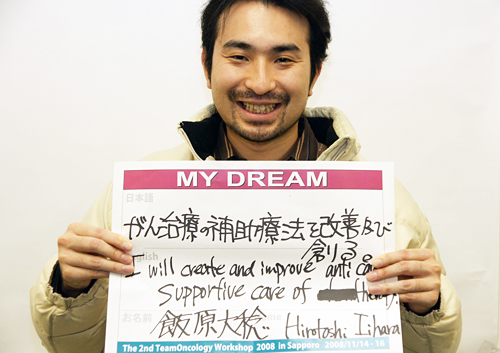 MY DREAM
日本語
がん治療の補助療法を改善及び
創る。
English
I will create and improve anti
Supportive care of therapy.
お名前
飯原大稔 Hirotoshi Iihara
The 2nd TeamOncology Workshop 2008 in Sapporo 2008/11/14-16